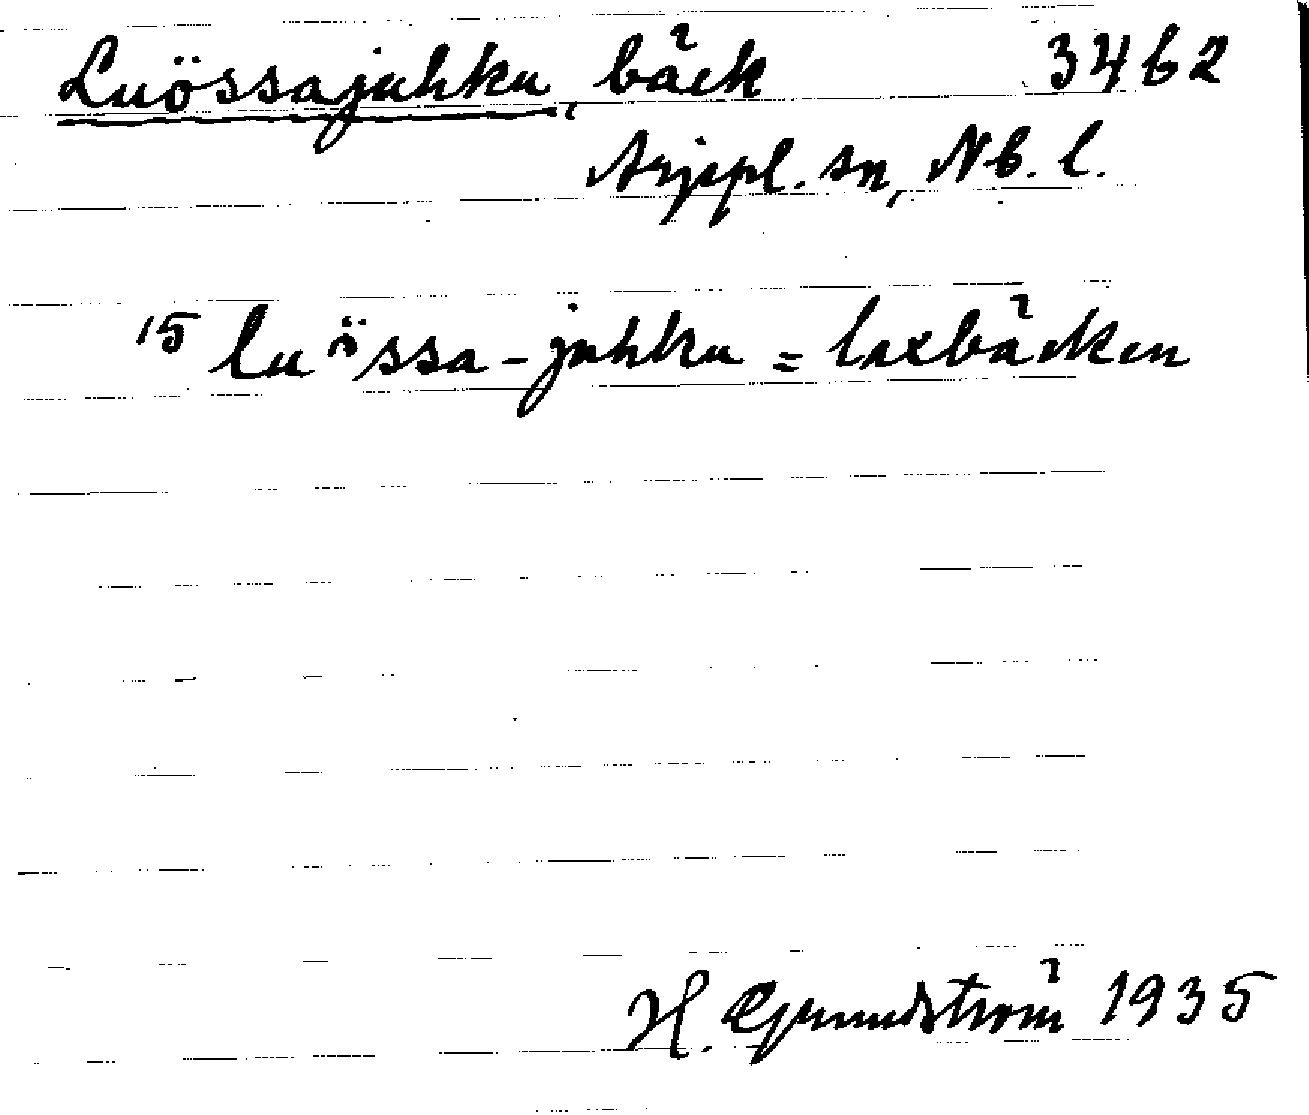 Luössajuhku, bäck 3462
Arjepl. sn, Nb. l.
15 luössa-juhku = laxbäcken
H. Grundström 1935